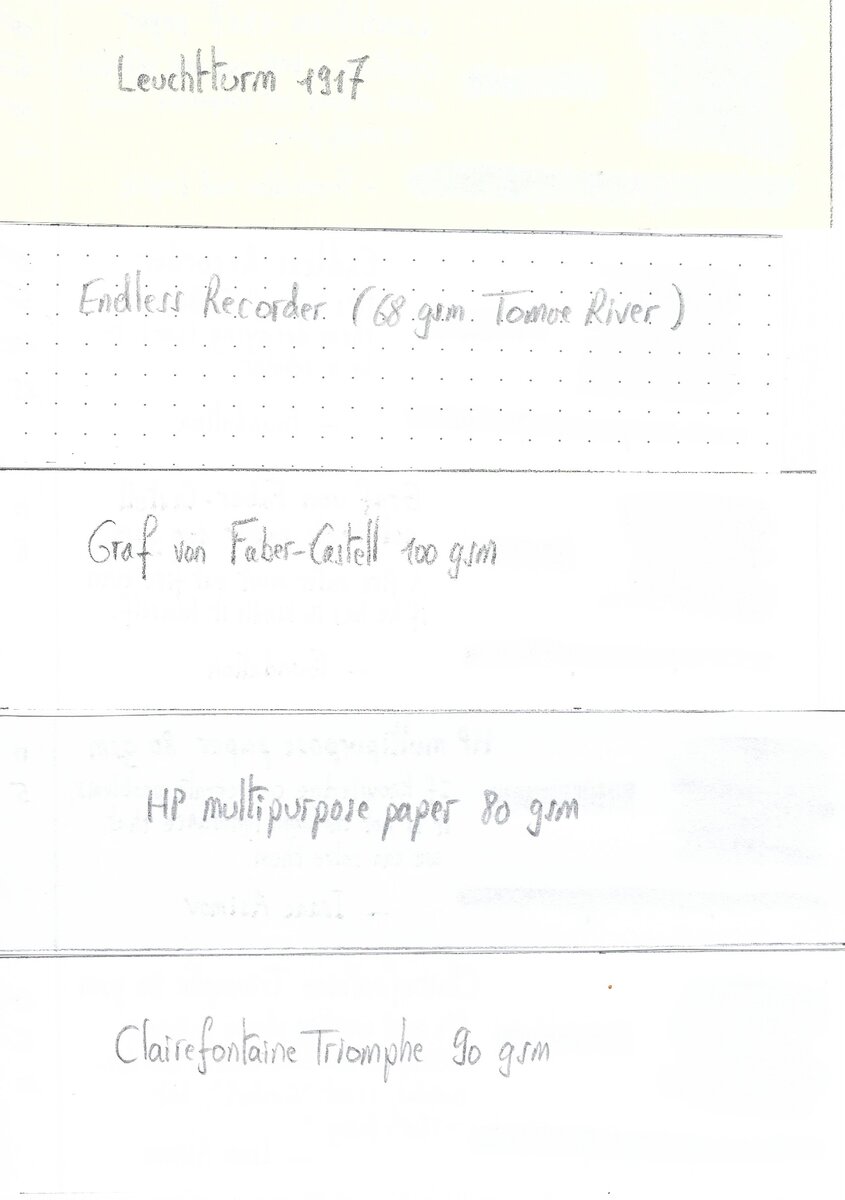 Leuchtturm 1917
Endless Recorder (68 gsm Tomoe River)
Graf von Faber-Castell 100 gsm
HP multipurpose paper 80 gsm
Clairefontaine Triomphe 90 gsm